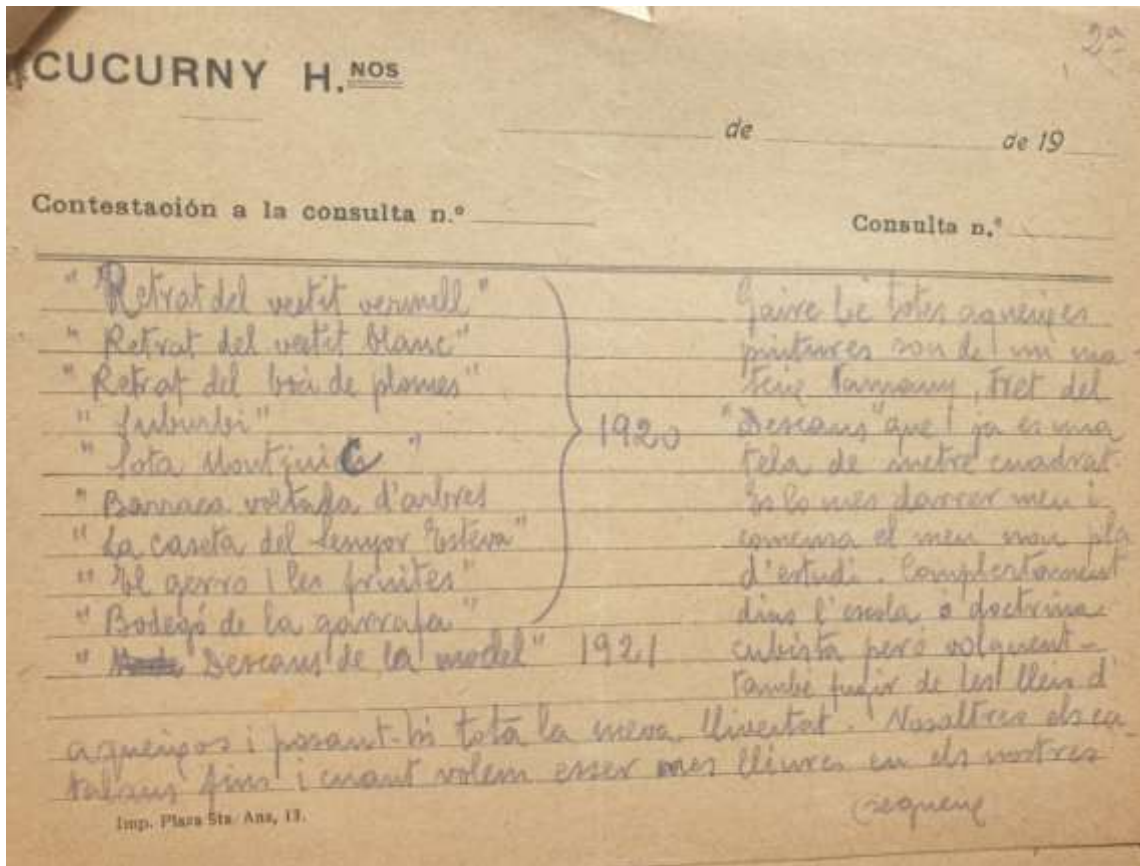 2ª
CUCURNY H.NOS
de de 19
Contestación a la consulta n.º Consulta n.º
" Retrat del vestit vermell "
" Retrat del vestit blanc "
" Retrat del boà de plomes "
" Suburbi "
" Sota Montjuic "
" Barraca voltada d'arbres
" La caseta del senyor Esteva "
" El gerro i les fruites "
" Bodegó de la garrafa "
1920
" Descans de la model " 1921
Gaire bé totes aqueixes
pintures son de un ma-
teix tamany, tret del
"Descans" que ja es una
tela de metre cuadrat.
Es lo mes darrer meu i
comensa el meu nou pla
d'estudi. Complertament
dins l'escola o doctrina
cubista peró volguent-
també fugir de les lleis d'
aqueixos i posant-hi tota la meva llivertat. Nosaltres els ca-
talans fins i cuant volem esser mes lliures en els nostres
segueix
Imp. Plaza Sta Ana, 13.